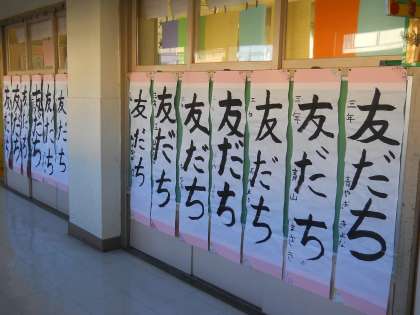 友だち
三年
友だち
三年
友だち
友だち
友だち
友だち
友だち
友だち
友だち
友だち
友だち
友だち
友だち